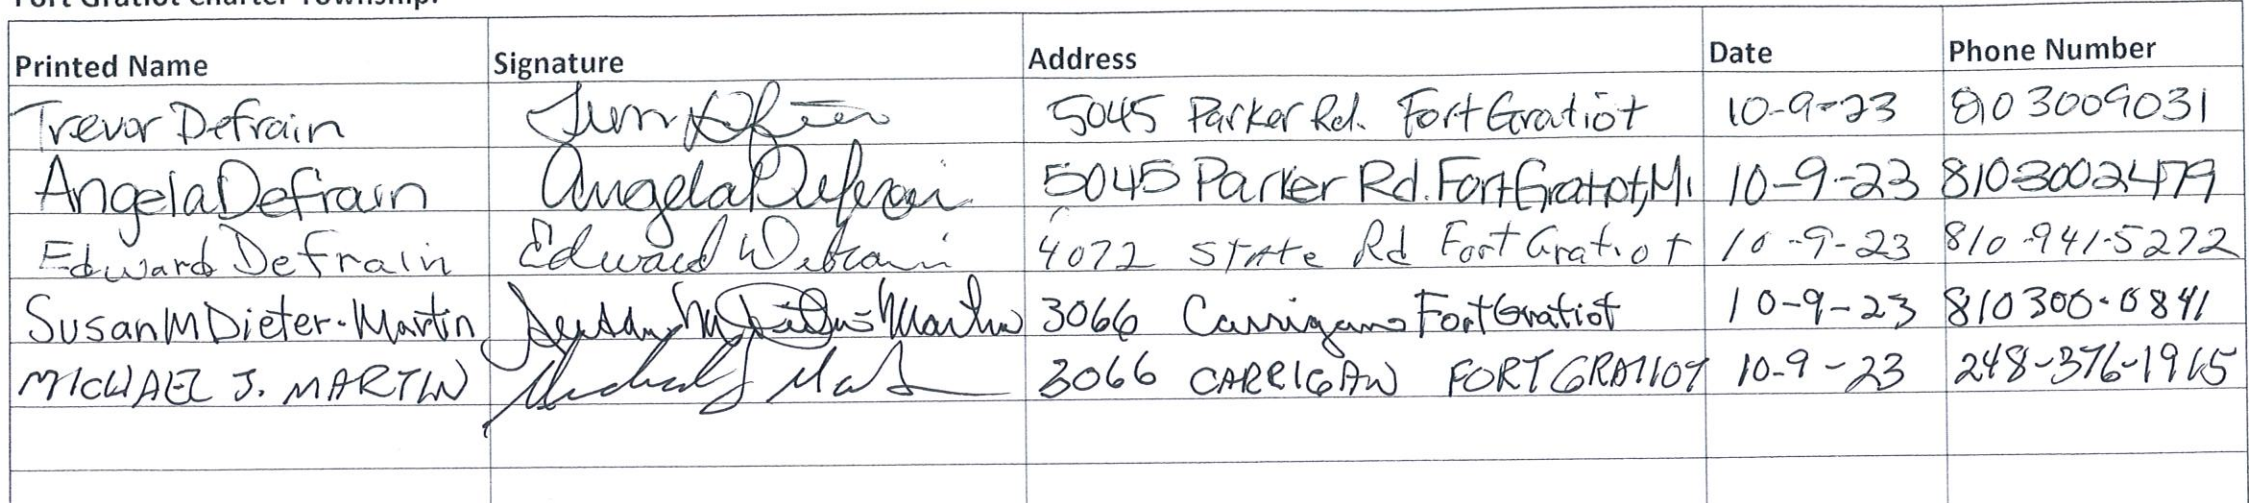 Fort Gratiot Charter Township.
Printed Name Signature Address Date Phone Number
Trevor Defrain 5045 Parker Rd. Fort Gratiot 10-9-23 810 3009031
Angela Defrain Angela Defrain 5045 Parker Rd. Fort Gratiot, Mi 10-9-23 8103002479
Edward Defrain Edward Defrain 4072 State Rd Fort Gratiot 10-9-23 810-941-5272
Susan M Dieter-Martin Susan M Dieter-Martin 3066 Carrigan Fort Gratiot 10-9-23 810 300-0841
MICHAEL J. MARTIN Michael J Mart 3066 CARRIGAN FORT GRATIOT 10-9-23 248-376-1965